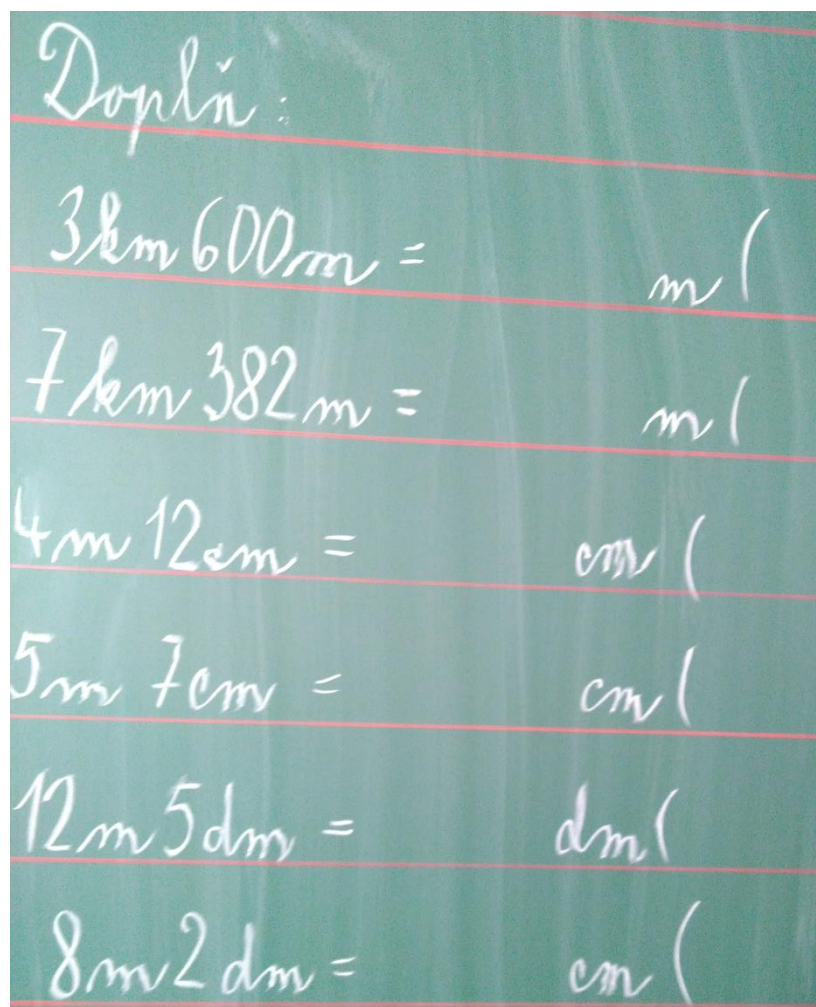 Doplň:
3km 600m = m (
7km 382m = m (
4m 12cm = cm (
5m 7cm = cm (
12m 5dm = dm (
8m 2dm = cm (